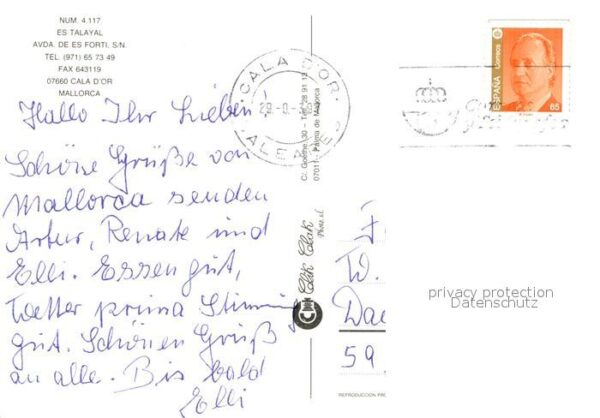 NUM. 4.117
ES TALAYAL
AVDA. DE ES FORTI, S/N
TEL. (971) 65 73 49
FAX 643119
07660 CALA D'OR
MALLORCA
Hallo Ihr Lieben
Schöne Grüße von
Mallorca senden
Artur, Renate und
Elli. Essen gut,
Wetter prima Stimmung
gut. Schönen Gruß
an alle. Bis bald
Elli
CALA D'OR
C/. Goethe, 30 - Tel. 28 91 13
07011 - Palma de Mallorca
Clik Clak
Photo s.l.
REPRODUCCION PR
ESPAÑA
Correos
65
W.
59
privacy protection
Datenschutz